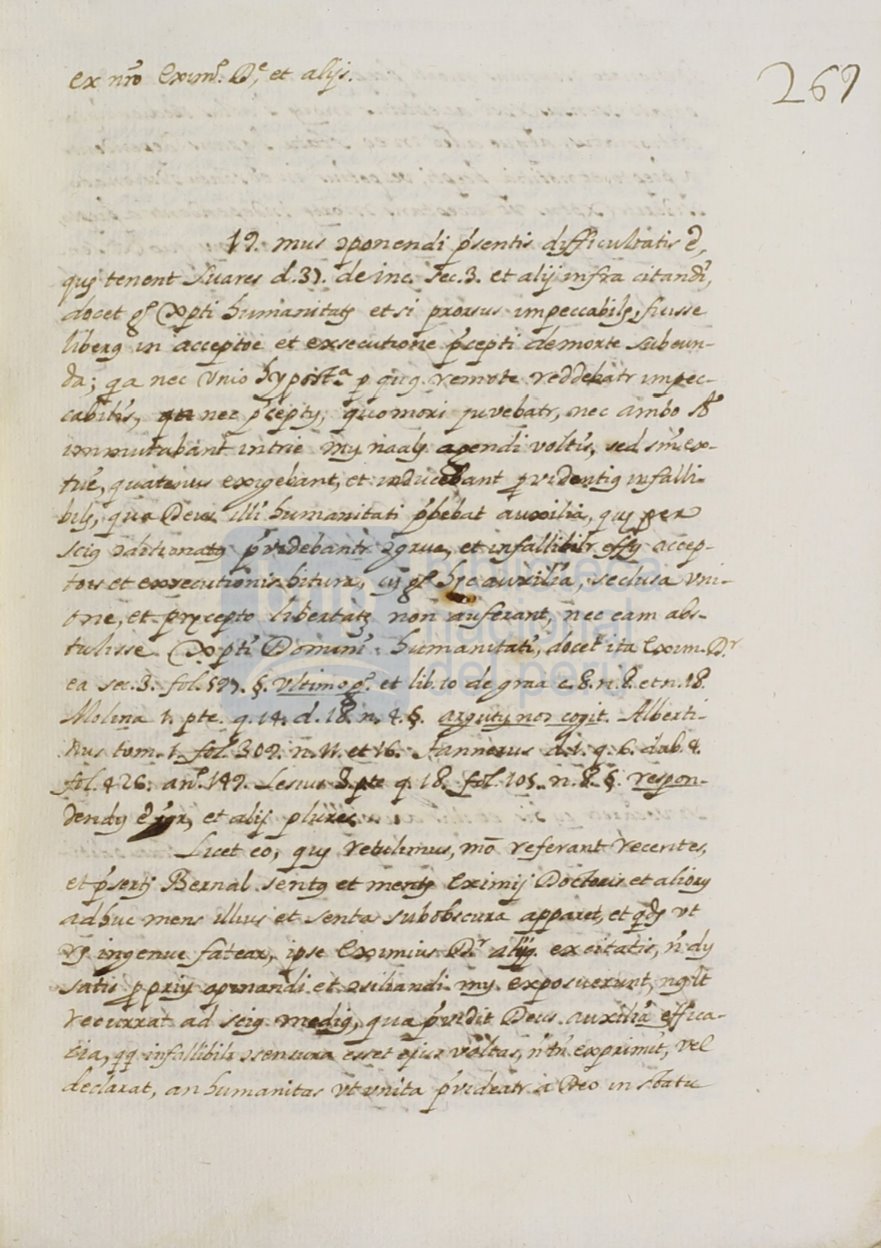 ex nr̃o Exim.º D.e et alijs.
269
19. mus ɔponendi p'sentis difficultatis ẽ,
quẽ tenent Suares d. 31. de inc. sec. 3. et alij infra citandi,
docet q.e Xp̃ti humanitatẽ etsi prorsus impeccabilẽ, fuisse
liberã in acceptõe et exsecutione p'cepti de morte subeun-
da; q̃a nec Vnio hypost.a p quã remote reddebatr impec-
cabilis, nec p'ceptũ, quo mori juvebatr, nec ambo sl'
immutabant intrie mũ naalẽ agendi voltis, sed sm̃ ex-
tuẽ, quatenus exigebant, et inducebant p videntiã infalli-
bilẽ, qua Deus illi humanitati p'bebat auxilia, quẽ per
sciã ɔditionatã p'videbantr ɔgrue, et infallibilr effũ accep-
tõis et exsecutionis bitura, hẽc auxilia, seclusa vni-
one, et prẽcepto libertatẽ non auferant, nec eam abs-
tulisse Xp̃ti Domini humanitati, docet ita Exim. D.r
ea sec. 3. fol. 597. §. Vltimo et lib. 10 de graa c. 8. n. 8. et n. 18.
Molina 1. pte. q. 14. d. 18. n. 4. §. argutũ nos cogit. Alberti-
nus tom. 1. fol. 309. n. 11. et 16. Tannerus d. 1. q. 6. dub. 4.
fol. 426. an.º 149. Lesius 3. pte q. 18. fol. 105. n. 8. §. respon-
dendũ et alij plures
Licet eo, quẽ retulimus, mõ referant recentes,
et p'sertĩ Bernal sentã et mentẽ Eximij Doctoris et aliorũ
adhuc mens illius et senta subobscura apparet, et ut
ingenue fatear, ipse Eximius D.r alijq. excitatis, ñdũ
satis p priũ opinandi et ɔsiliandi mũ exposuerunt, n
recurrat ad sciã mediã, qua p'vidit Deus auxilia effica-
cia, infallibilr ɔsensura esset ejus voltas, ñ tñ exprimit, vel
declarat, an humanitas vt vnita p'videatr a Deo in statu